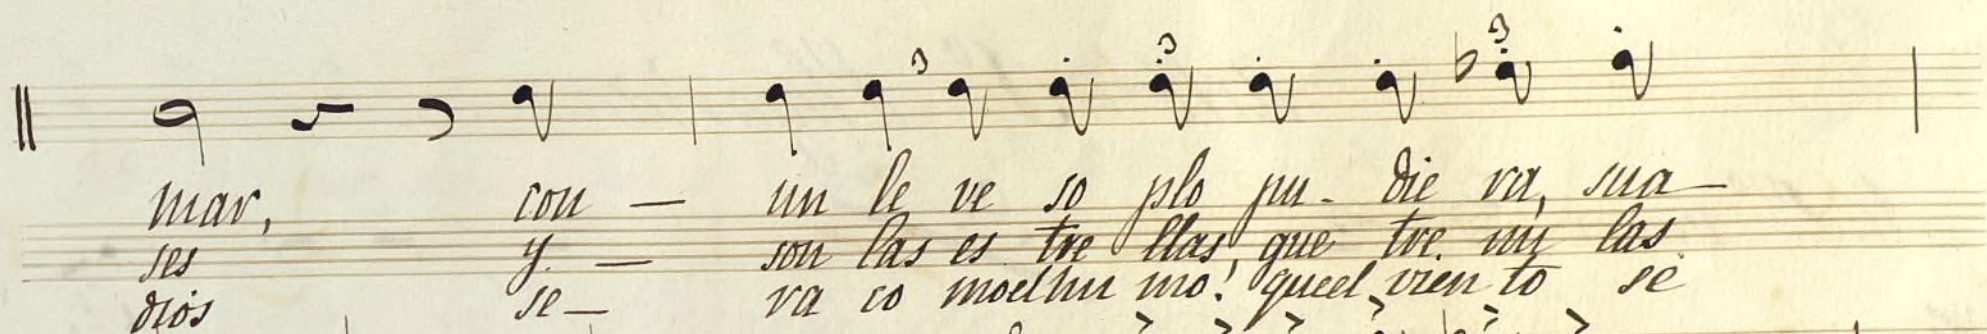 mar, con — un le ve so plo pu - die ra, sua —
ses y. — son las es tre llas, que tre. mu las
dios se — va co moelhu mo! queel vien to se